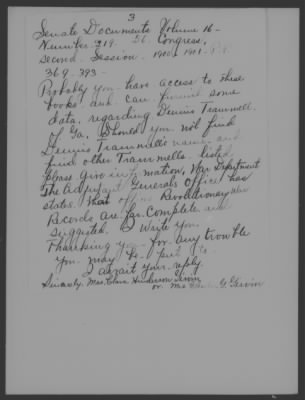 3
Senate Documents Volume 16 -
Number 319. 56 Congress,
second - Session - 1900 - 1901 -
369 - 393 -
Probably you have access to these
books and can furnish some
data, regarding Dennis Trammell.
of Ga. Should you not find
Dennis Trammells name and
find other Trammells listed
please give information. War Department
The Adjutant Generals Office has
states that no Revolutionary War
Records are complete and
suggested I write you.
Thanking you for any trouble
you may be put to
I await your reply.
Sincerely Mrs. Clara Henderson Girvin
or Mrs G. Girvin